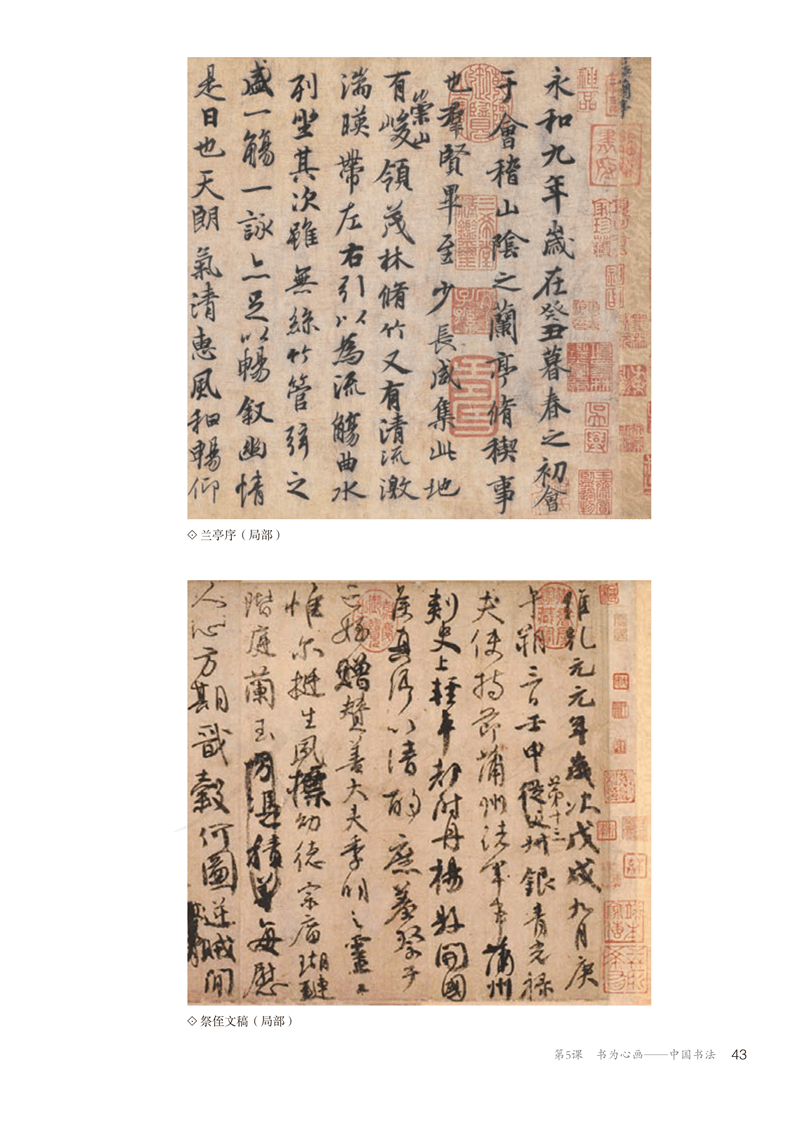 永和九年歲在癸丑暮春之初會
于會稽山陰之蘭亭脩稧事
也羣賢畢至少長咸集此地
有崇山峻領茂林脩竹又有清流激
湍暎帶左右引以為流觴曲水
列坐其次雖無絲竹管弦之
盛一觴一詠亦足以暢敘幽情
是日也天朗氣清惠風和暢仰
兰亭序（局部）
維乾元元年歲次戊戌九月庚
午朔三日壬申第十三從父叔銀青光禄
夫使持節蒲州諸軍事蒲州
刺史上輕車都尉丹楊縣開國
侯真卿以清酌庶羞祭于
亡姪贈贊善大夫季明之靈
惟爾挺生夙標幼德宗廟瑚璉
階庭蘭玉每慰
人心方期戩穀何圖逆賊閒
祭侄文稿（局部）
第5课 书为心画——中国书法 43